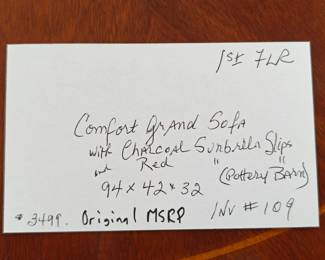 1st FLR
Comfort Grand Sofa
with Charcoal Sunbrella Slips
and Red " "
94 x 42 x 32 (Pottery Barn)
$3499. Original MSRP INV # 109